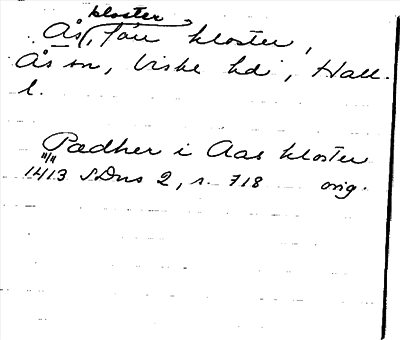 kloster
Ås, förr kloster,
Ås sn, Viske hd, Hall.
l.
Pædher i Aas kloster
1413 SDns 2, s. 718 orig.